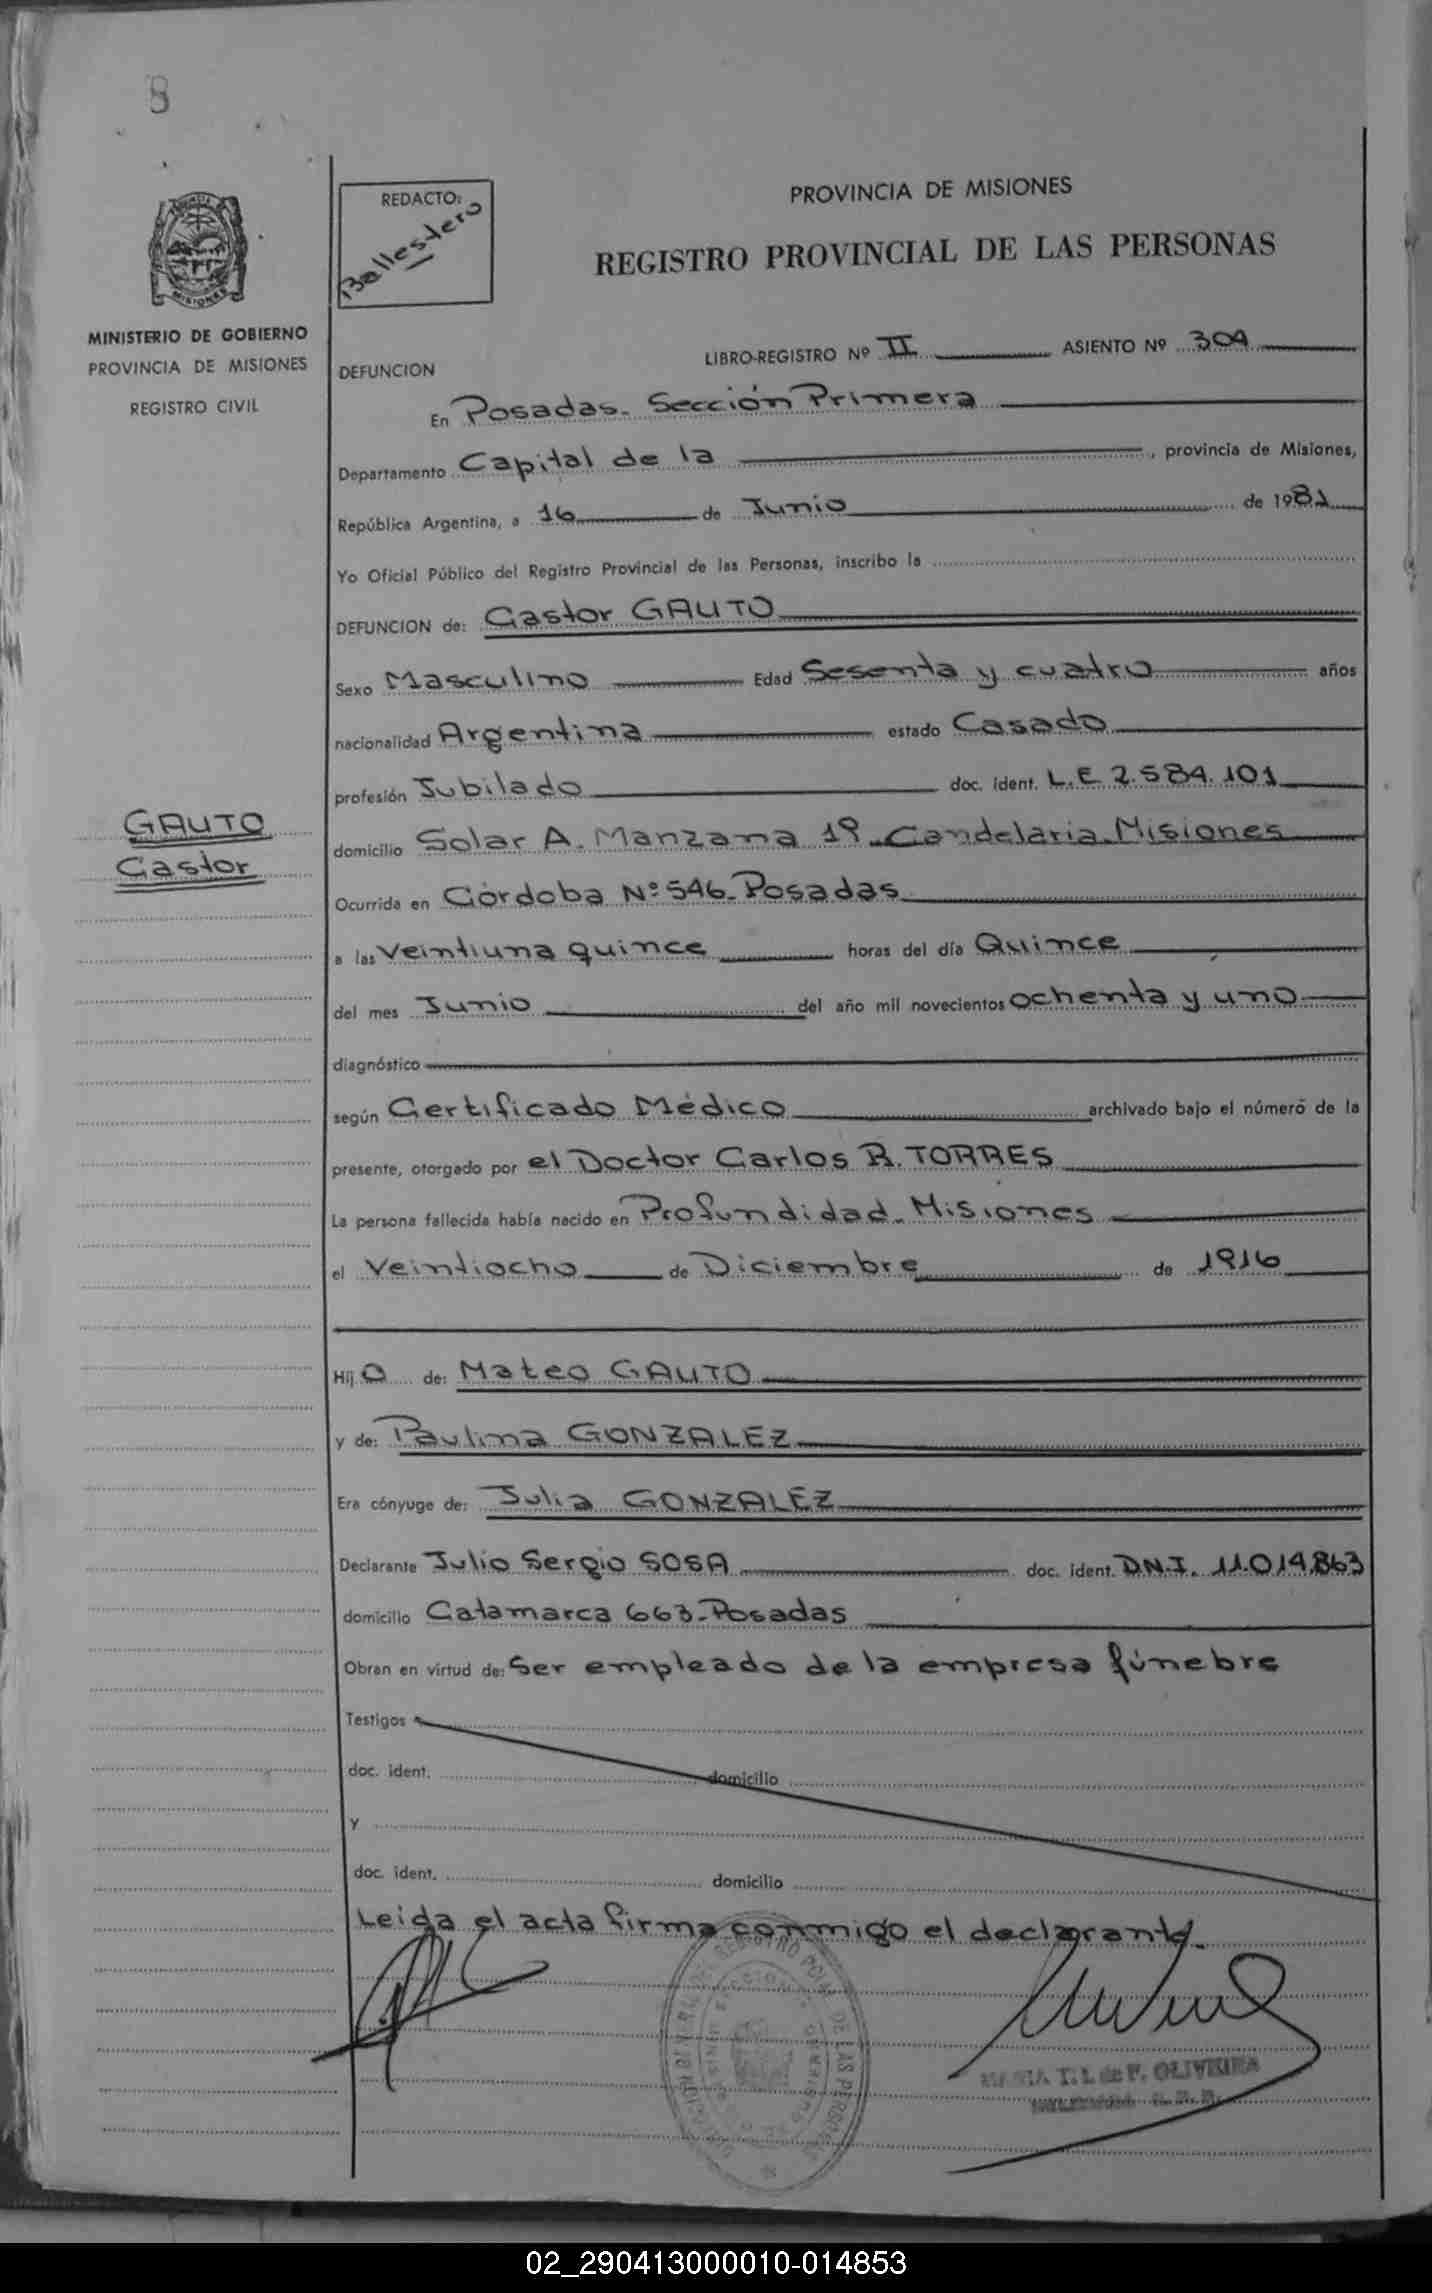 8
MISIONES
MINISTERIO DE GOBIERNO
PROVINCIA DE MISIONES
REGISTRO CIVIL
GAUTO
Castor
REDACTO:
Ballestero
PROVINCIA DE MISIONES
REGISTRO PROVINCIAL DE LAS PERSONAS
DEFUNCION LIBRO-REGISTRO Nº II ASIENTO Nº 304
En Posadas. Sección Primera
Departamento Capital de la , provincia de Misiones,
República Argentina, a 16 de Junio de 1981
Yo Oficial Público del Registro Provincial de las Personas, inscribo la
DEFUNCION de: Castor GAUTO
Sexo Masculino Edad Sesenta y cuatro años
nacionalidad Argentina estado Casado
profesión Jubilado doc. ident. L.E 2.584.101
domicilio Solar A. Manzana 19 Candelaria. Misiones
Ocurrida en Córdoba Nº 546. Posadas
a las Veintiuna quince horas del día Quince
del mes Junio del año mil novecientos ochenta y uno
diagnóstico
según Certificado Médico archivado bajo el número de la
presente, otorgado por el Doctor Carlos R. TORRES
La persona fallecida había nacido en Profundidad. Misiones
el Veintiocho de Diciembre de 1916
Hij o de: Mateo GAUTO
y de: Paulina GONZALEZ
Era cónyuge de: Julia GONZALEZ
Declarante Julio Sergio SOSA doc. ident. D.N.I. 11.014.863
domicilio Catamarca 663-Posadas
Obran en virtud de: Ser empleado de la empresa fúnebre
Testigos
doc. ident. domicilio
y
doc. ident. domicilio
Leida el acta firma conmigo el declarante.
MARIA T. I. de F. OLIVEIRA
02_290413000010-014853